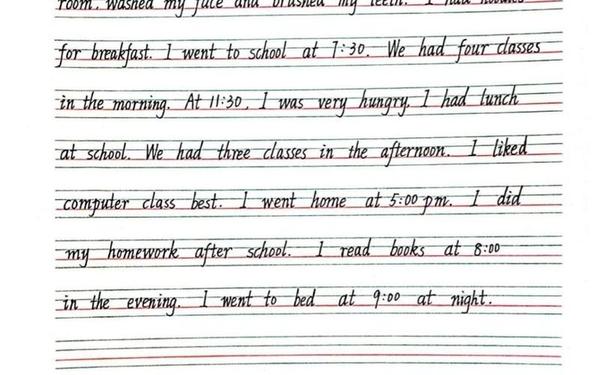 room, washed my face and brushed my teeth. I had noodles
for breakfast. I went to school at 7:30. We had four classes
in the morning. At 11:30, I was very hungry. I had lunch
at school. We had three classes in the afternoon. I liked
computer class best. I went home at 5:00 pm. I did
my homework after school. I read books at 8:00
in the evening. I went to bed at 9:00 at night.